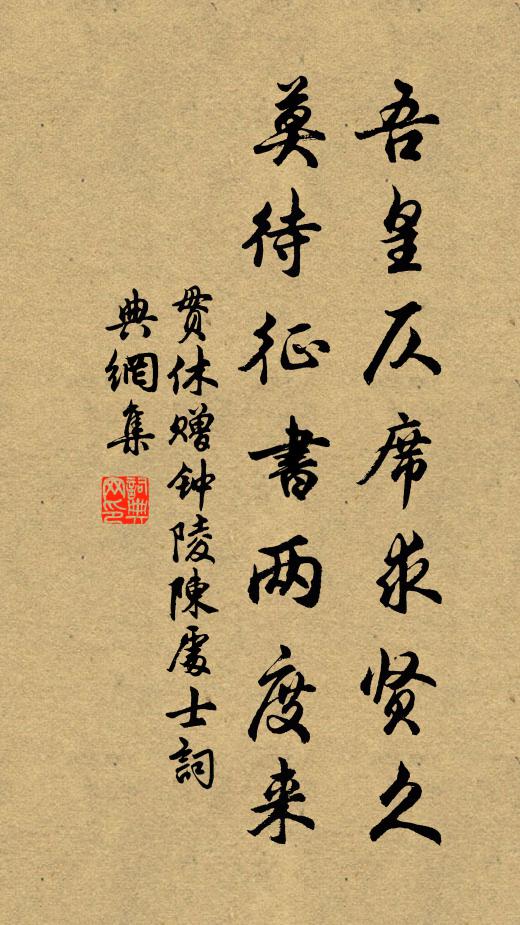 吾皇仄席求贤久
莫待征书两度来
贯休赠钟陵陳處士詞
典網集
詞典网印